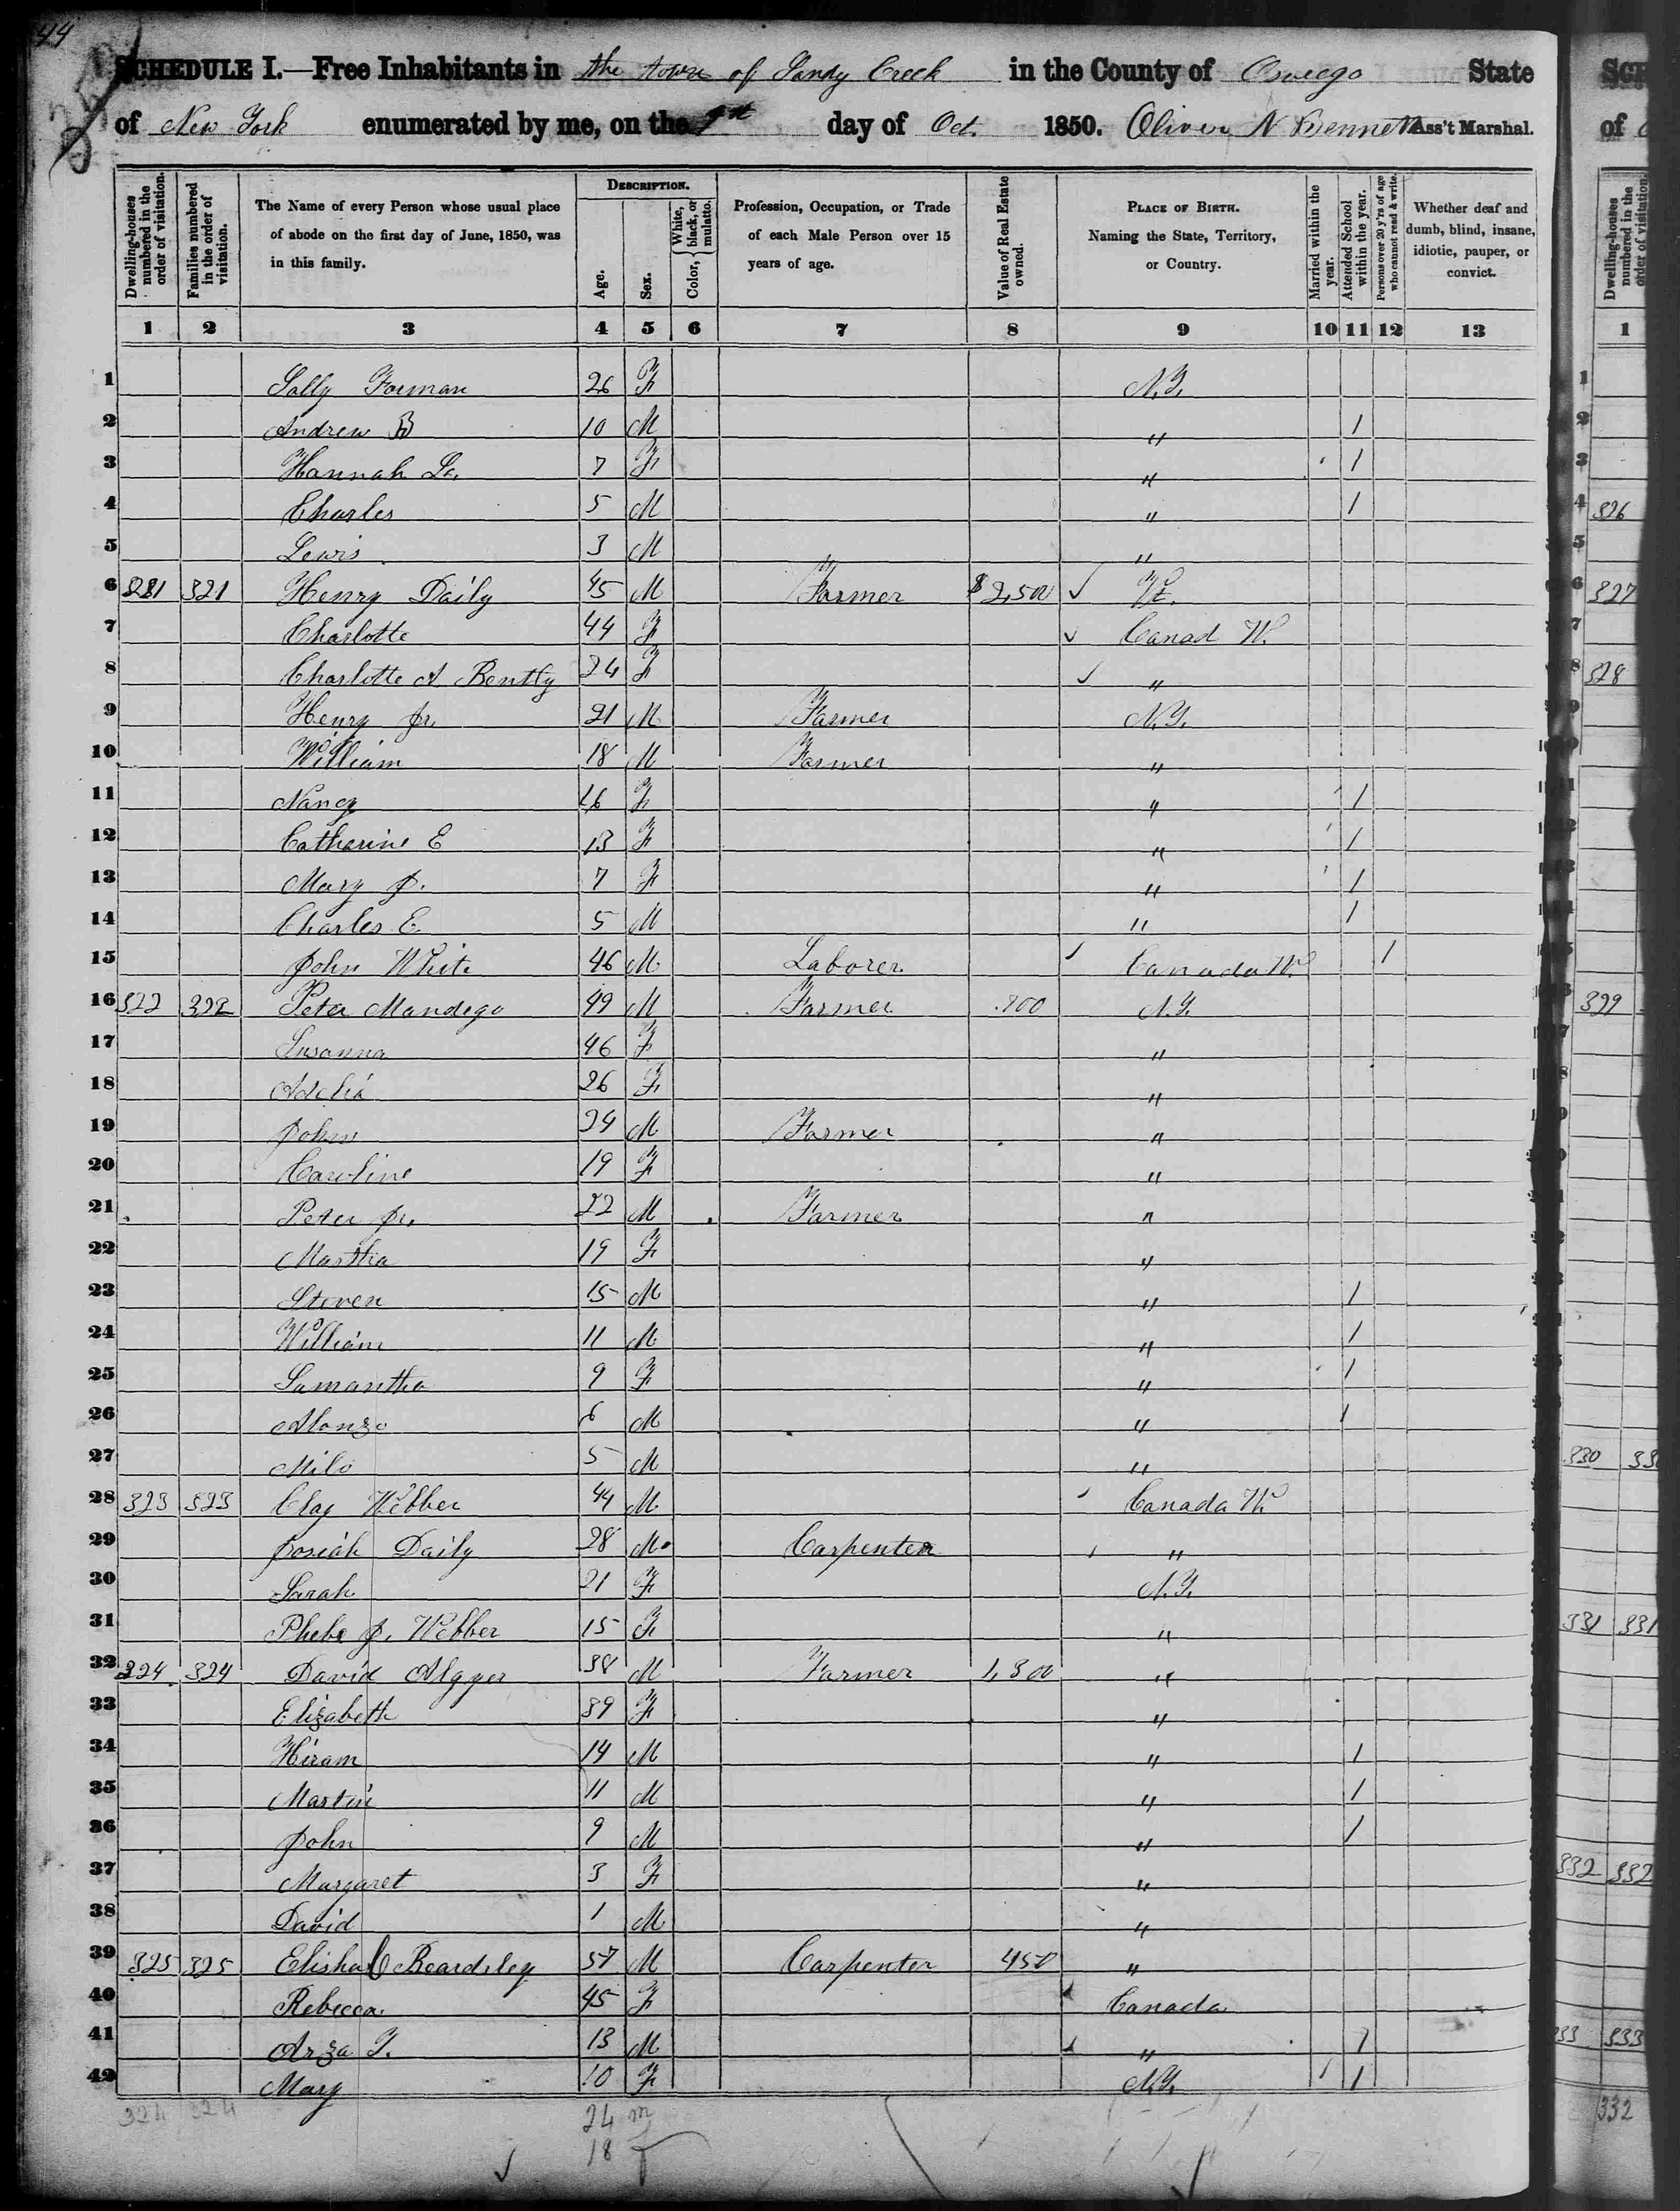 44
SCHEDULE I.—Free Inhabitants in the town of Sandy Creek in the County of Oswego State
of New York enumerated by me, on the day of Oct. 1850. Oliver N Bennett Ass't Marshal.
Dwelling-houses numbered in the order of visitation.
Families numbered in the order of visitation.
The Name of every Person whose usual place of abode on the first day of June, 1850, was in this family.
DESCRIPTION.
Age.
Sex.
Color, White, black, or mulatto.
Profession, Occupation, or Trade of each Male Person over 15 years of age.
Value of Real Estate owned.
PLACE OF BIRTH. Naming the State, Territory, or Country.
Married within the year.
Attended School within the year.
Persons over 20 y'rs of age who cannot read & write.
Whether deaf and dumb, blind, insane, idiotic, pauper, or convict.
1 2 3 4 5 6 7 8 9 10 11 12 13
1 Sally Forman 26 F N.Y.
2 Andrew B 10 M " 1
3 Hannah L. 7 F " 1
4 Charles 5 M " 1
5 Lewis 3 M "
6 321 321 Henry Daily 45 M Farmer $2,500 ✓ Vt.
7 Charlotte 44 F ✓ Canad W.
8 Charlotte A Bently 24 F ✓ "
9 Henry Jr. 21 M Farmer N.Y.
10 William 18 M Farmer "
11 Nancy 16 F " 1
12 Catharine E 13 F " 1
13 Mary J. 7 F " 1
14 Charles E. 5 M " 1
15 John White 46 M Laborer Canada W. 1
16 322 322 Peter Mandego 49 M Farmer 800 N.Y.
17 Susanna 46 F "
18 Adelia 26 F "
19 John 24 M Farmer "
20 Caroline 19 F "
21 Peter Jr. 22 M Farmer "
22 Martha 19 F "
23 Steven 15 M " 1
24 William 11 M " 1
25 Samantha 9 F " 1
26 Alonzo 6 M " 1
27 Milo 5 M "
28 323 323 Clay Webber 44 M Canada W.
29 Josiah Daily 28 M Carpenter "
30 Sarah 21 F N.Y.
31 Phebe J. Webber 15 F "
32 324 324 David Algyer 38 M Farmer 1,300 "
33 Elizabeth 39 F "
34 Hiram 14 M " 1
35 Martin 11 M " 1
36 John 9 M " 1
37 Margaret 3 F "
38 David 1 M "
39 325 325 Elisha C Beardsley 57 M Carpenter 450 "
40 Rebecca 45 F Canada
41 Arza T. 13 M " 1
42 Mary 10 F N.Y. 1
324 324
24 m
18 f
SCH
of
Dwelling-houses numbered in the order of visitation.
1
326
327
328
329
330 33
331 331
332 332
333 333
332